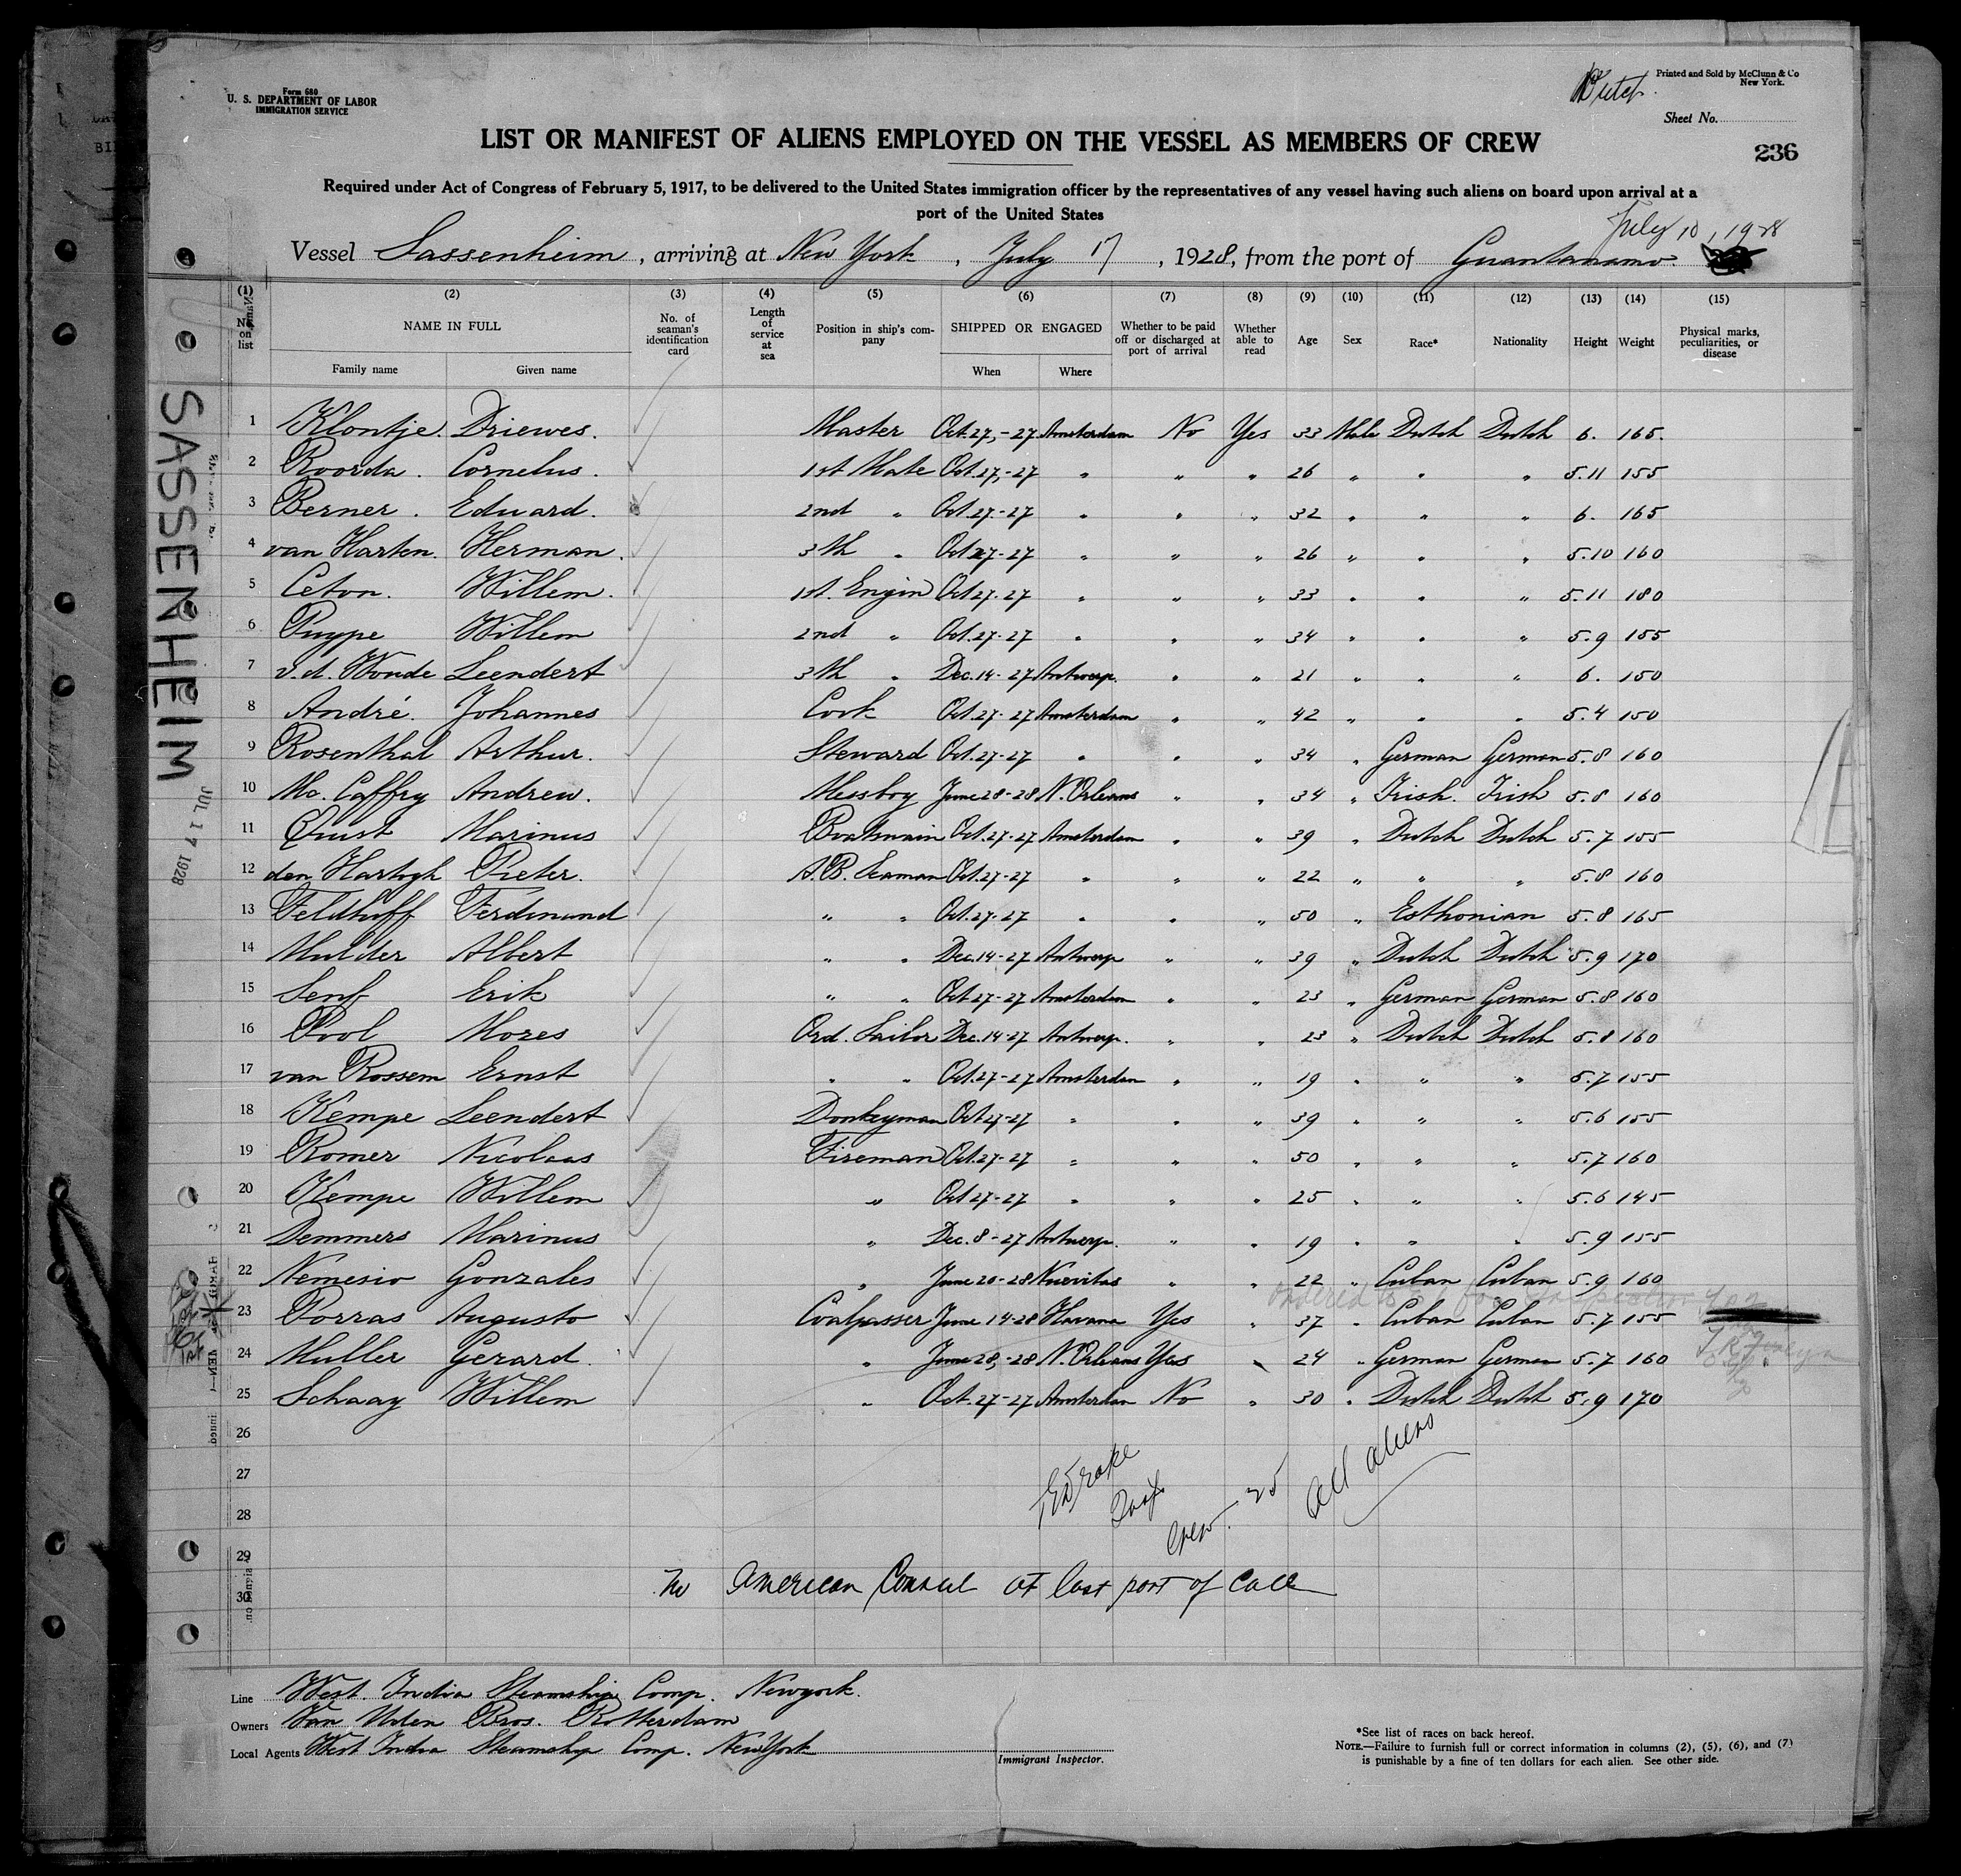 Form 680
U. S. DEPARTMENT OF LABOR
IMMIGRATION SERVICE
Dutch.
Printed and Sold by McClunn & Co
New York.
Sheet No.
LIST OR MANIFEST OF ALIENS EMPLOYED ON THE VESSEL AS MEMBERS OF CREW
236
Required under Act of Congress of February 5, 1917, to be delivered to the United States immigration officer by the representatives of any vessel having such aliens on board upon arrival at a
port of the United States
July 10, 1928
Vessel Sassenheim, arriving at New York, July 17, 1928, from the port of Guantanamo.
(1) (2) (3) (4) (5) (6) (7) (8) (9) (10) (11) (12) (13) (14) (15)
No. on list
NAME IN FULL
Family name Given name
No. of seaman's identification card
Length of service at sea
Position in ship's company
SHIPPED OR ENGAGED
When Where
Whether to be paid off or discharged at port of arrival
Whether able to read
Age
Sex
Race*
Nationality
Height
Weight
Physical marks, peculiarities, or disease
1 Klontje. Driewes. Master Oct. 27,-27 Amsterdam No Yes 33 Male Dutch Dutch 6. 165.
2 Roorda. Cornelus. 1st Mate Oct. 27,-27 " " " 26 " " " 5.11 155
3 Berner. Eduard. 2nd " Oct. 27.-27 " " " 32 " " " 6. 165
4 van Harten. Herman. 3th " Oct 27-27 " " " 26 " " " 5.10 160
5 Ceton. Willem. 1st. Engin Oct. 27.27 " " " 33 " " " 5.11 180
6 Puype Willem 2nd " Oct. 27-27 " " " 34 " " " 5.9 155
7 v.d. Woude Leendert 3th " Dec. 14-27 Antwerp. " " 21 " " " 6. 150
8 André. Johannes Cook Oct. 27-27 Amsterdam " " 42 " " " 5.4 150
9 Rosenthal Arthur. Steward Oct. 27-27 " " " 34 " German German 5.8 160
10 Mc. Caffry Andrew. Messboy June 28-28 N. Orleans " " 34 " Irish. Irish 5.8 160
11 Quist Marinus Boatswain Oct. 27-27 Amsterdam " " 39 " Dutch Dutch 5.7 155
12 den Hartogh Pieter. A.B. Seaman Oct. 27-27 " " " 22 " " " 5.8 160
13 Feldhuff Ferdinand " " Oct. 27-27 " " " 50 " Esthonian 5.8 165
14 Mulder Albert " " Dec. 14-27 Antwerp " " 39 " Dutch Dutch 5.9 170
15 Senf Erik " " Oct 27-27 Amsterdam " " 23 " German German 5.8 160
16 Pool Mozes Ord. Sailor Dec. 14-27 Antwerp. " " 23 " Dutch Dutch 5.8 160
17 van Rossem Ernst " " Oct. 27-27 Amsterdam " " 19 " " " 5.7 155
18 Kempe Leendert Donkeyman Oct 27-27 " " " 39 " " " 5.6 155
19 Romer Nicolaas Fireman Oct. 27-27 " " " 50 " " " 5.7 160
20 Kempe Willem " Oct 27-27 " " " 25 " " " 5.6 145
21 Demmers Marinus " Dec. 8-27 Antwerp. " " 19 " " " 5.9 155
22 Nemesio Gonzales " June 20-28 Nuevitas " " 22 " Cuban Cuban 5.9 160
23 Porras Augusto Coalpasser June 14-28 Havana Yes " 37 " Cuban Cuban 5.7 155
24 Muller Gerard. " June 28,-28 N. Orleans Yes " 24 " German German 5.7 160
25 Schaay Willem " Oct. 27-27 Amsterdam No " 30 " Dutch Dutch 5.9 170
26
27
28
29
30
Crew. 25
all aliens
No American Consul at last port of call
Line West India Steamship Comp. Newyork.
Owners Van Uden Bros. Rotterdam
Local Agents West India Steamship Comp. New York
Immigrant Inspector.
*See list of races on back hereof.
NOTE.—Failure to furnish full or correct information in columns (2), (5), (6), and (7)
is punishable by a fine of ten dollars for each alien. See other side.
SASSENHEIM
JUL 17 1928